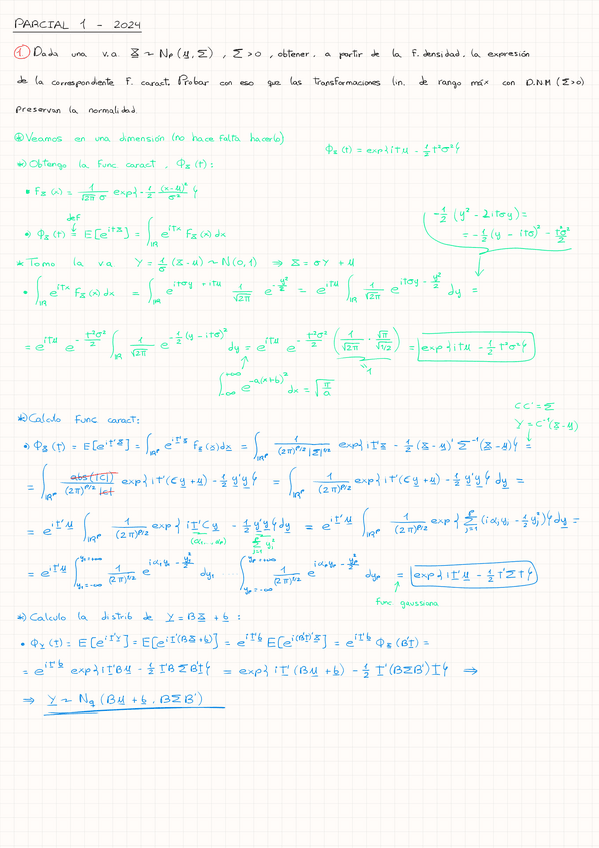 PARCIAL 1 - 2024
① Dada una v.a X ~ Np (μ, Σ) , Σ>0 , obtener, a partir de la F. densidad, la expresión
de la correspondiente F. caract. Probar con eso que las transformaciones lin. de rango máx con D.N.M (Σ>0)
preservan la normalidad.
⊛ Veamos en una dimensión (no hace falta hacerlo)
Φx (t) = exp{itμ - 1/2 t²σ²}
*) Obtengo la Func caract , Φx (t) :
• Fx (x) = 1/(√2π σ) exp{-1/2 (x-μ)²/σ²}
-1/2 (y² - 2itσy) =
= -1/2 (y - itσ)² - t²σ²/2
def
Φx (t) = E[e^{itX}] = ∫_ℝ e^{itx} Fx (x) dx
* Tomo la va Y = 1/σ (X-μ) ~ N(0,1) ⇒ X = σY + μ
• ∫_ℝ e^{itx} Fx (x) dx = ∫_ℝ e^{itσy + itμ} 1/√2π e^{-y²/2} = e^{itμ} ∫_ℝ 1/√2π e^{itσy - y²/2} dy =
= e^{itμ} e^{-t²σ²/2} ∫_ℝ 1/√2π e^{-1/2 (y - itσ)²} dy = e^{itμ} e^{-t²σ²/2} (1/√2π · √π/√1/2) = exp{itμ - 1/2 t²σ²}
1
∫_{-∞}^{+∞} e^{-a(x+b)²} dx = √(π/a)
CC' = Σ
Y = C⁻¹(X-μ)
*) Calculo Func caract:
Φx (t) = E[e^{it'X}] = ∫_ℝᵖ e^{it'x} Fx (x) dx = ∫_ℝᵖ 1/((2π)^{p/2} |Σ|^{1/2}) exp{it'x - 1/2 (x-μ)' Σ⁻¹ (x-μ)} =
= ∫_ℝᵖ abs(|C|)/((2π)^{p/2} |C|) exp{it'(Cy + μ) - 1/2 y'y} = ∫_ℝᵖ 1/(2π)^{p/2} exp{it'(Cy + μ) - 1/2 y'y} dy =
= e^{it'μ} ∫_ℝᵖ 1/(2π)^{p/2} exp{it'Cy - 1/2 y'y} dy = e^{it'μ} ∫_ℝᵖ 1/(2π)^{p/2} exp{Σ_{j=1}^p (iαjyj - 1/2 yj²)} dy =
(α₁, ..., αp) Σ_{j=1}^p yj²
= e^{it'μ} ∫_{y₁=-∞}^{y₁=+∞} 1/(2π)^{1/2} e^{iα₁y₁ - y₁²/2} dy₁ ... ∫_{yp=-∞}^{yp=+∞} 1/(2π)^{1/2} e^{iαpyp - yp²/2} dyp = exp{it'μ - 1/2 t'Σt}
func gaussiana
*) Calculo la distrib de Y = BX + b :
• Φy (t) = E[e^{it'Y}] = E[e^{it'(BX + b)}] = e^{it'b} E[e^{i(B't)'X}] = e^{it'b} Φx (B't) =
= e^{it'b} exp{it'Bμ - 1/2 t'BΣB't} = exp{it'(Bμ + b) - 1/2 t'(BΣB')t} ⇒
⇒ Y ~ Nq (Bμ + b, BΣB')